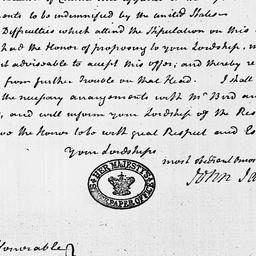 ments to be indemnified by the united States.
Difficulties which attend the Stipulation on this
had the Honor of proposing to your Lordship,
t advisable to accept this offer; and thereby re
from further Trouble on that Head. I shall
the necessary arrangements with Mr Bird an
, and will inform your Lordship of the Res
ve the Honor to be with great Respect and Es
Your Lordships
most obedient &
John Ja
HER MAJESTY'S STATE PAPER OFFICE
Honorable